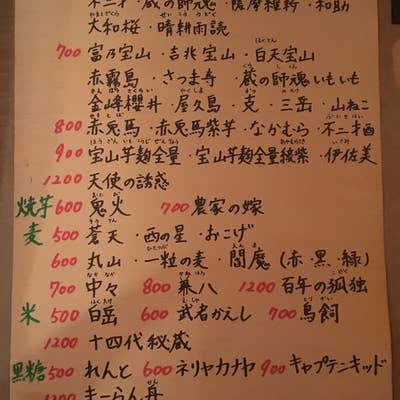 不二才・蔵の師魂・薩摩維新・和助
大和桜・晴耕雨読
700 富乃宝山・吉兆宝山・白天宝山
赤霧島・さつま寿・蔵の師魂いもいも
金峰櫻井・屋久島・克・三岳・山ねこ
800 赤兎馬・赤兎馬紫芋・なかむら・不二才醅
900 宝山芋麹全量・宝山芋麹全量綾紫・伊佐美
1200 天使の誘惑
焼芋 600 鬼火 700 農家の嫁
麦 500 蒼天・西の星・おこげ
600 丸山・一粒の麦・閻魔(赤・黒・緑)
700 中々 800 兼八 1200 百年の孤独
米 500 白岳 600 武者かえし 700 鳥飼
1200 十四代秘蔵
黒糖 500 れんと 600 ネリヤカナヤ 900 キャプテンキッド
1200 まーらん舟